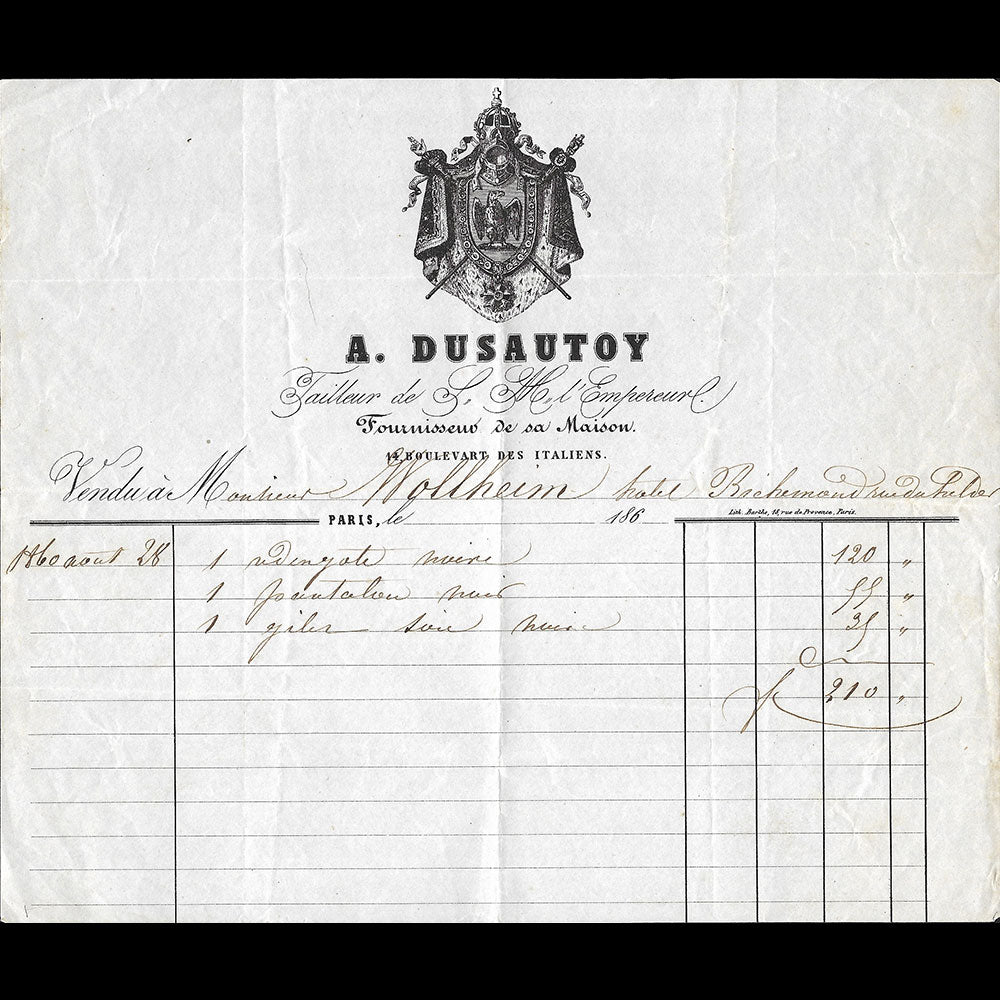 A. DUSAUTOY
Tailleur de S. M. l'Empereur.
Fournisseur de sa Maison.
14, BOULEVART DES ITALIENS.
Vendu à Monsieur Wollheim hotel Richemond rue du Helder
PARIS, le 186
Lith. Barthe, 18, rue de Provence, Paris.
1860 août 28 1 redingote noire 120 „
1 pantalon noir 55 „
1 gilet soie noire 35 „
f 210 „